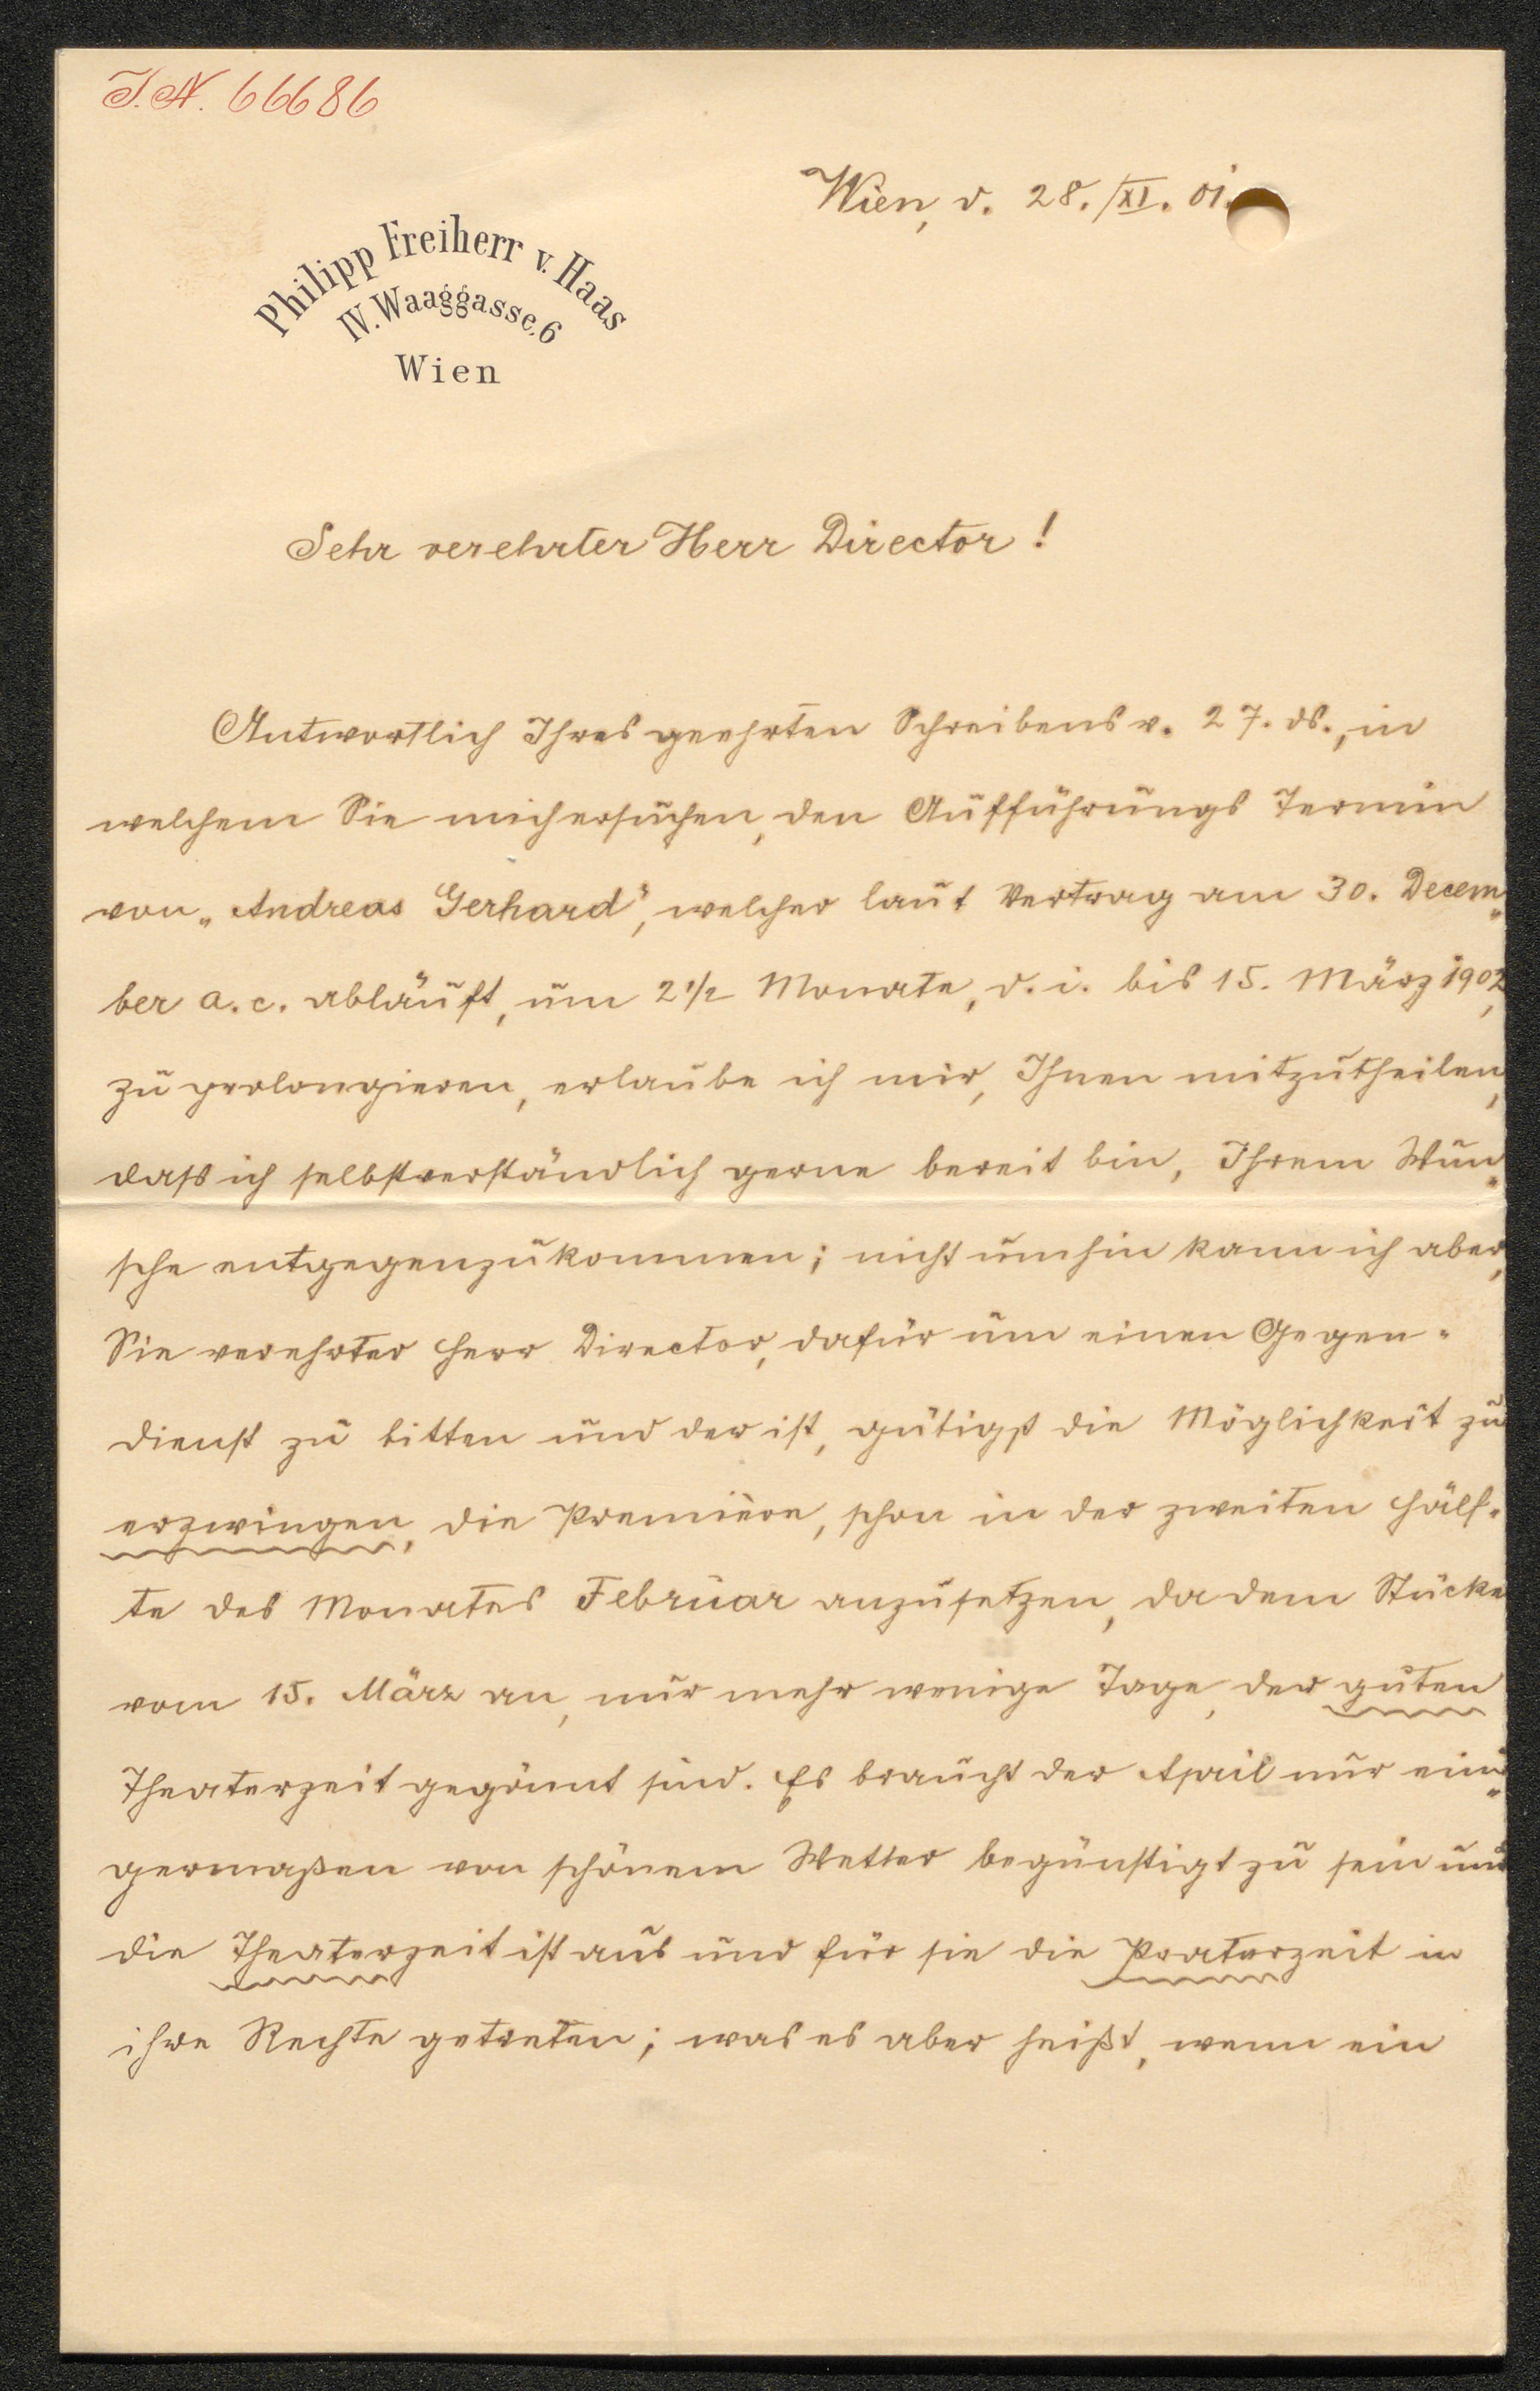 I.N. 66686
Wien, d. 28./XI. 01.
Philipp Freiherr v. Haas
IV. Waaggasse. 6
Wien
Sehr verehrter Herr Director!
Antwortlich Ihres geehrten Schreibens v. 27. ds., in
welchem Sie mich ersuchen, den Aufführungs Termin
von „Andreas Gerhard“, welcher laut Vertrag am 30. Decem„
ber a. c. abläuft, um 2 1/2 Monate, d. i. bis 15. März 1902,
zu prolongieren, erlaube ich mir, Ihnen mitzutheilen,
dass ich selbstverständlich gerne bereit bin, Ihrem Wun„
sche entgegenzukommen; nicht umhin kann ich aber,
Sie verehrter Herr Director, dafür um einen Gegen-
dienst zu bitten und der ist, gütigst die Möglichkeit zu
erzwingen, die Première, schon in der zweiten Hälf-
te des Monates Februar anzusetzen, da dem Stücke
vom 15. März an, nur mehr wenige Tage, der guten
Theaterzeit gegönnt sind. Es braucht der April nur eini„
germaßen von schönem Wetter begünstigt zu sein und
die Theaterzeit ist aus und für sie die Praterzeit in
ihre Rechte getreten; was es aber heißt, wenn ein